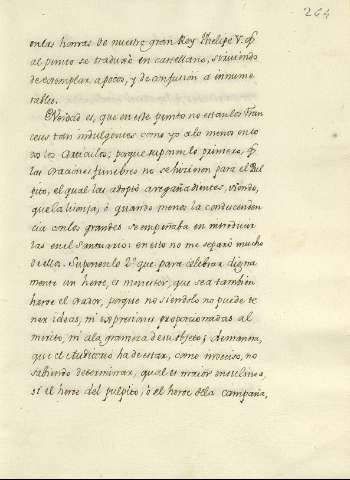 264
en las honras de nuestro gran Rey Phelipe V. q.
al punto se traduxo en castellano, sirviendo
de exemplar a pocos, y de confusion a innume
rables.
Verdad es, que en este punto no estan los Fran
ceses tan indulgentes como yo a lo menos en to
dos los Articulos; porque suponen lo primero, q.
las oraciones funebres no se hicieron para el Pul
pito, el qual las adoptó a regañadientes, viendo,
que la lisonja, ó quando menos la condescenden
cia con los grandes se empeñaba en introducir
las en el Santuario: en esto no me separo mucho
de ellos. Suponen lo 2.º que para celebrar digna
mente un heroe, es menester, que sea tambien
heroe el orador, porque no siendolo no puede te
ner ideas, ni expresiones proporcionadas al
merito, ni a la grandeza de su objeto; de manera,
que el Auditorio ha de estar, como indeciso, no
sabiendo determinar, qual es maior en su linea,
si el heroe del pulpito, ó el heroe de la campaña,